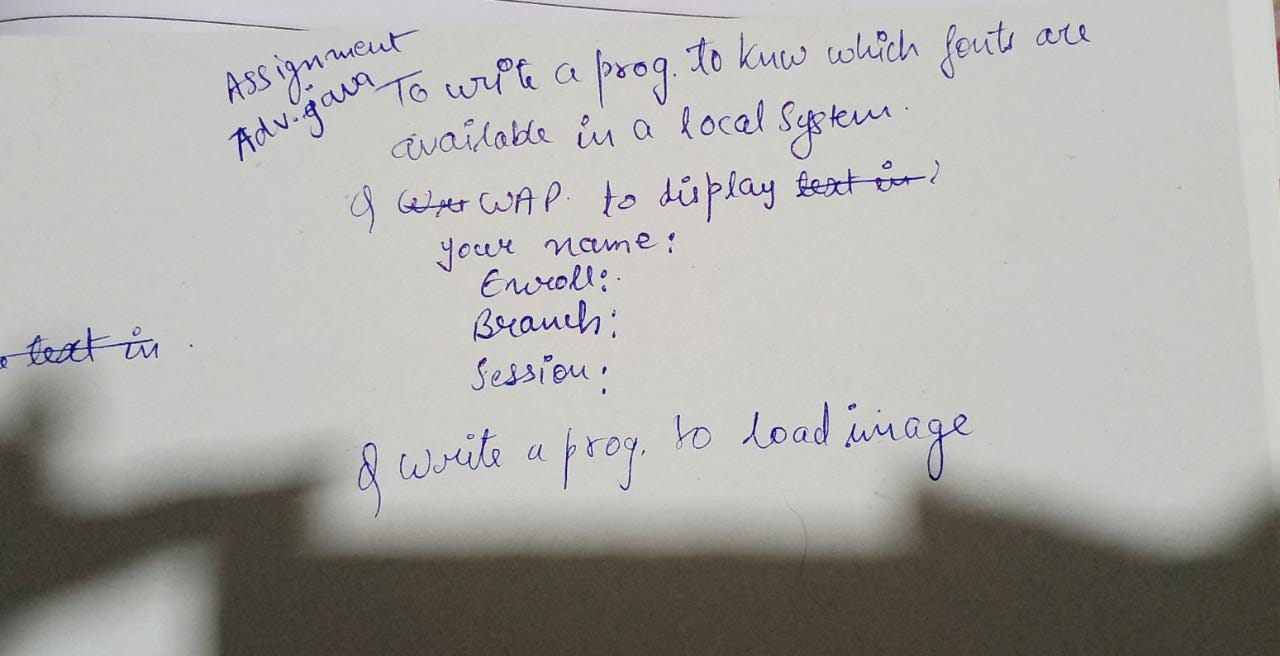 Assignment
Adv. java
To write a prog. to knuw which fonts are
available in a local System.
Q WAP. to display text in
your name:
Enroll:
Branch:
Session:
text in
Q write a prog. to load image